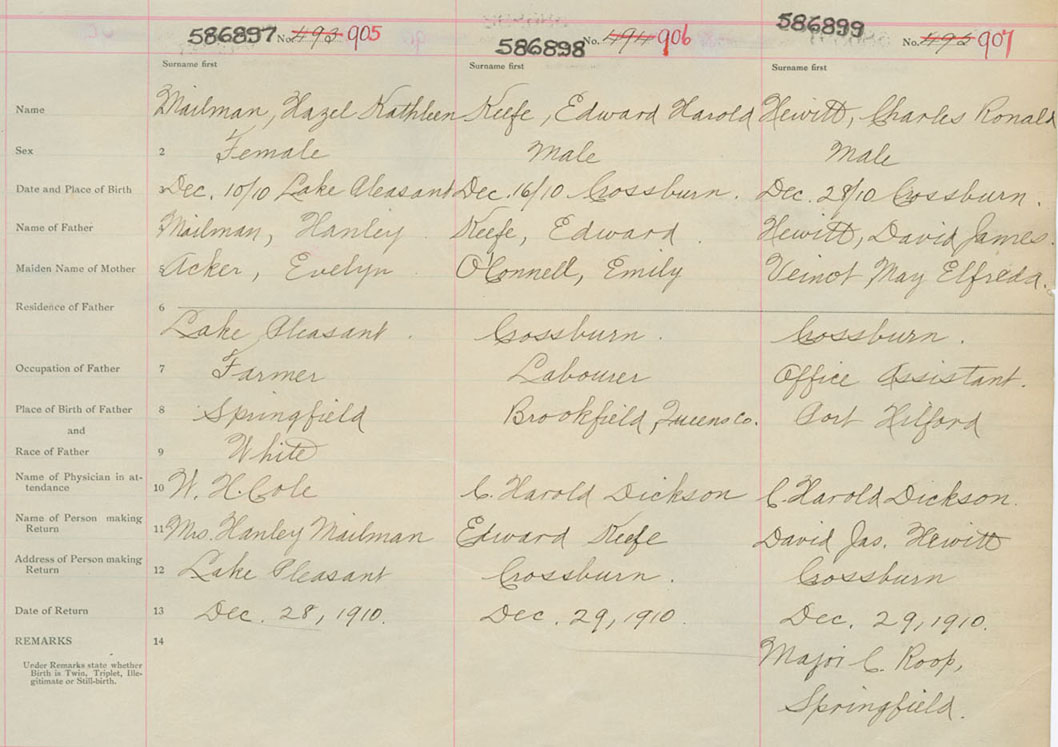 586897 No. 493 905 586898 No. 494 906 586899 No. 495 907
Surname first Surname first Surname first
Name Mailman, Hazel Kathleen Keefe, Edward Harold Hewitt, Charles Ronald
Sex 2 Female Male Male
Date and Place of Birth 3 Dec. 10/10 Lake Pleasant Dec. 16/10 Crossburn. Dec. 28/10 Crossburn.
Name of Father Mailman, Hanley Keefe, Edward. Hewitt, David James.
Maiden Name of Mother 5 Acker, Evelyn O'Connell, Emily Veinot, May Elfreda.
Residence of Father 6
Lake Pleasant. Crossburn. Crossburn.
Occupation of Father 7 Farmer Labourer Office Assistant.
Place of Birth of Father 8 Springfield Brookfield, Queens Co. Port Hilford
and
Race of Father 9 White
Name of Physician in at-
tendance 10 W. H. Cole C. Harold Dickson C. Harold Dickson.
Name of Person making
Return 11 Mrs. Hanley Mailman Edward Keefe David Jas. Hewitt
Address of Person making
Return 12 Lake Pleasant Crossburn. Crossburn
Date of Return 13 Dec. 28, 1910. Dec. 29, 1910. Dec. 29, 1910.
REMARKS 14
Under Remarks state whether
Birth is Twin, Triplet, Ille-
gitimate or Still-birth.
Major C. Roop,
Springfield.